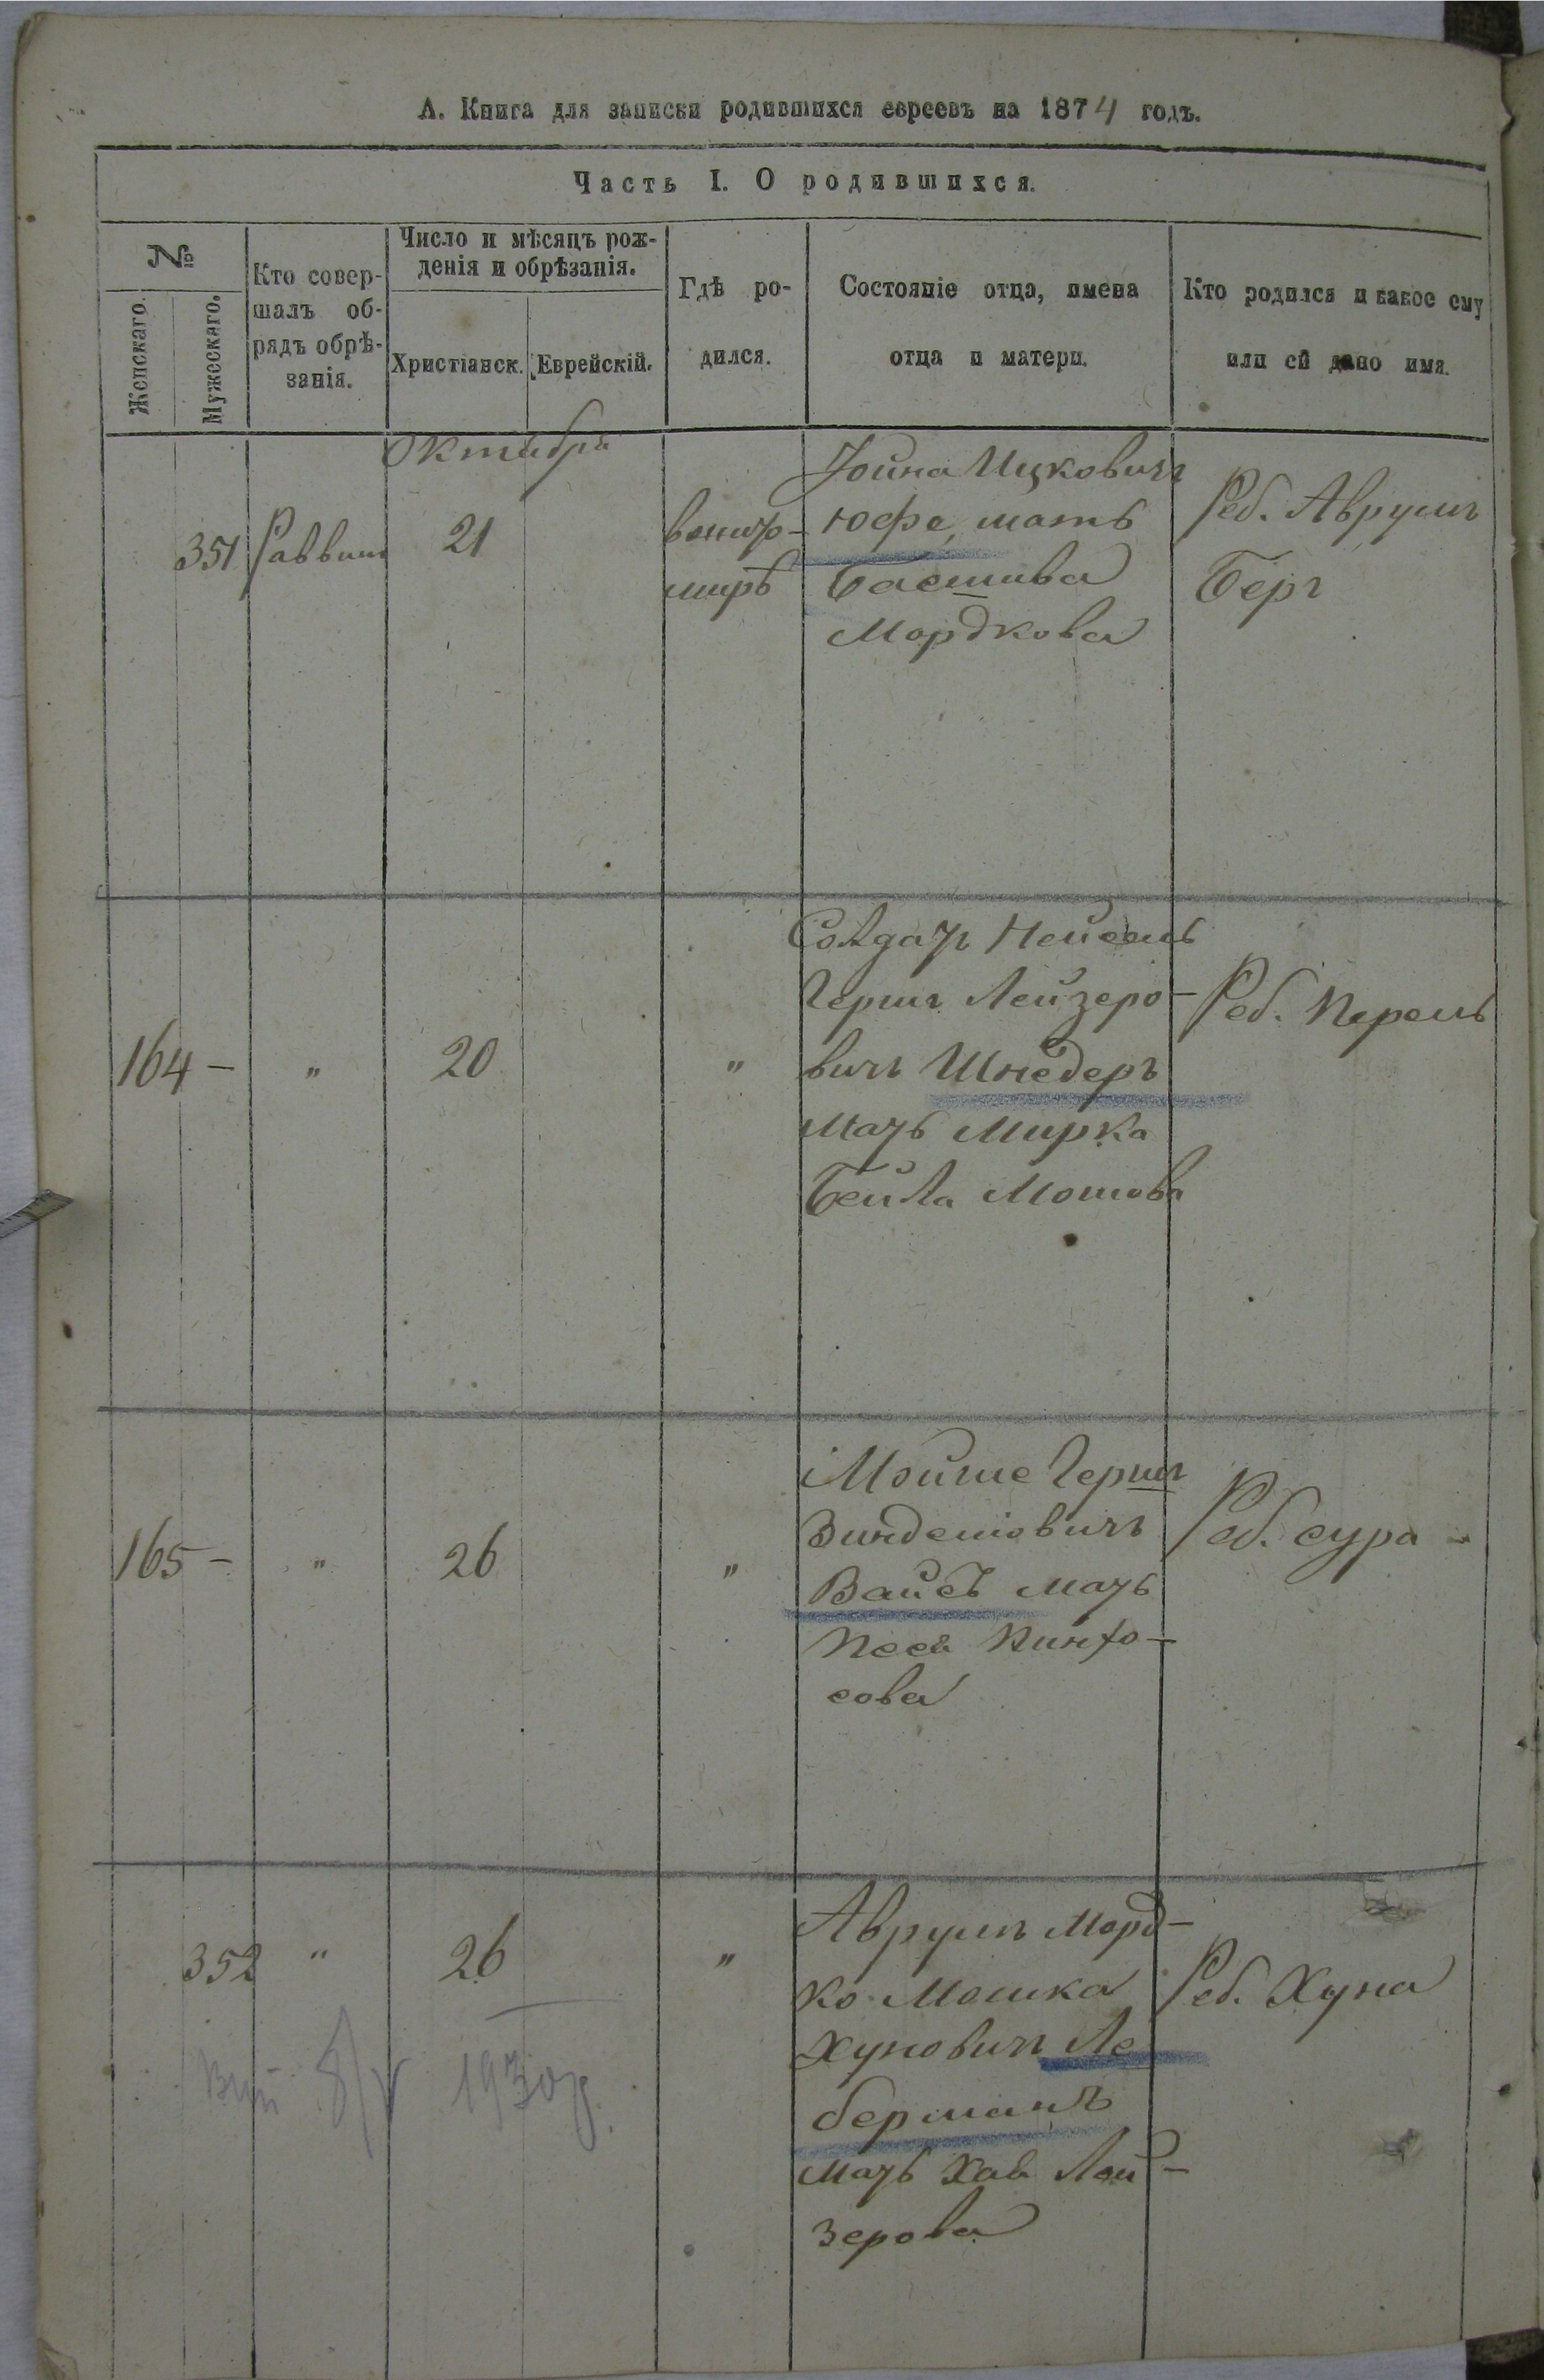 А. Книга для записки родившихся евреевъ на 1874 годъ.
Часть I. О родившихся.
№
Женскаго.
Мужескаго.
Кто совер-
шалъ об-
рядъ обрѣ-
занія.
Число и мѣсяцъ рож-
денія и обрѣзанія.
Христіанск.
Еврейскій.
Гдѣ ро-
дился.
Состояніе отца, имена
отца и матери.
Кто родился и какое ему
или ей дано имя.
Октября
351 Раввинъ 21
миръ
Іойна Ицковичъ
Юфе, мать
Басшива
Мордкова
Реб. Аврумъ
Беръ
164 - " 20 "
Солдатъ
Гершъ Лейзеро-
вичъ Шнедеръ
мать Мирка
Бейла Мошова
Реб. Перель
165 - " 26 "
Мойше Гершъ
Вайсъ мать
Песа Пинхо-
сова
Реб. Сура -
352 " 26 "
Аврумъ Морд-
ко Мошка
Хуновичъ Ле
берманъ
мать Хава Лей-
зерова
Реб. Хуна
1930 г.